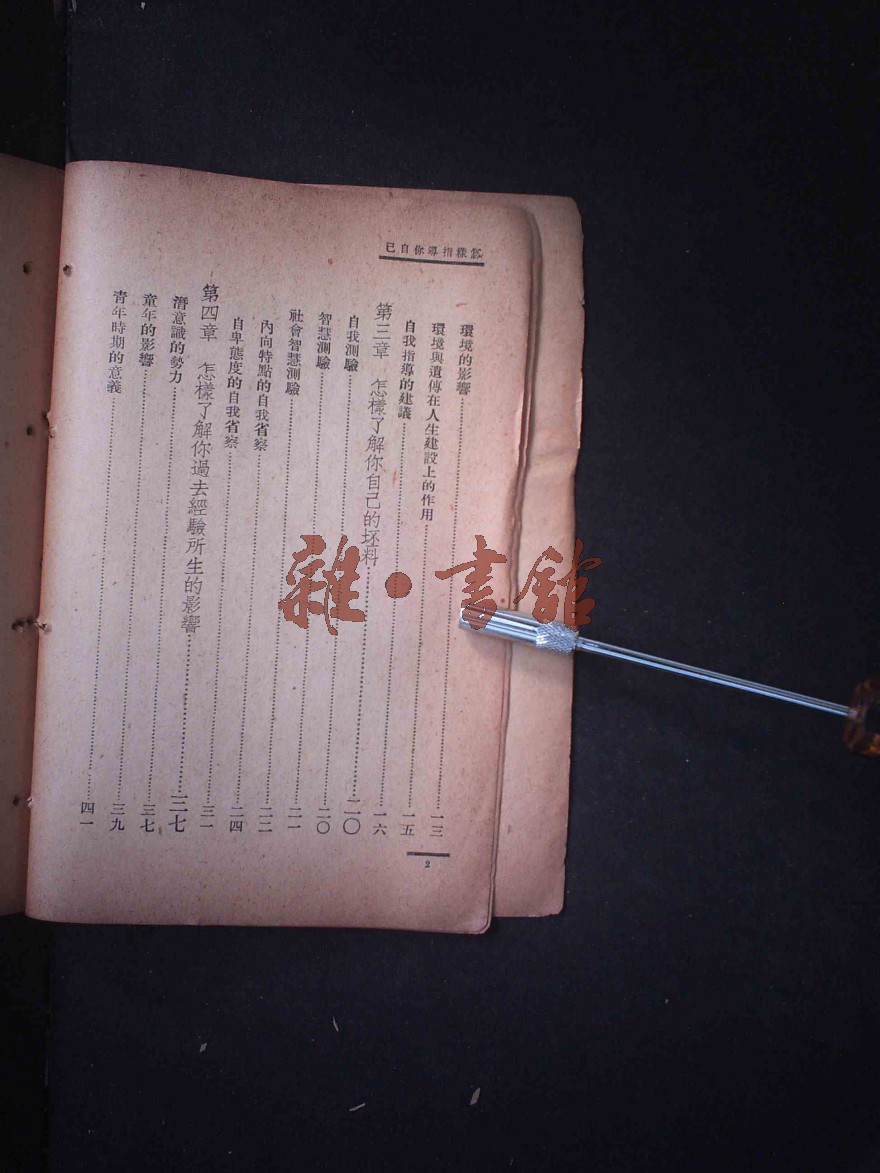 怎樣指導你自己
環境的影響⋯⋯一三
環境與遺傳在人生建設上的作用⋯⋯一五
自我指導的建議⋯⋯一六
第三章 怎樣了解你自己的坯料⋯⋯二〇
自我測驗⋯⋯二〇
智慧測驗⋯⋯二一
社會智慧測驗⋯⋯二二
內向特點的自我省察⋯⋯二四
自卑態度的自我省察⋯⋯三一
第四章 怎樣了解你過去經驗所生的影響⋯⋯三七
潛意識的勢力⋯⋯三七
童年的影響⋯⋯三九
青年時期的意義⋯⋯四一
2
雜·書館